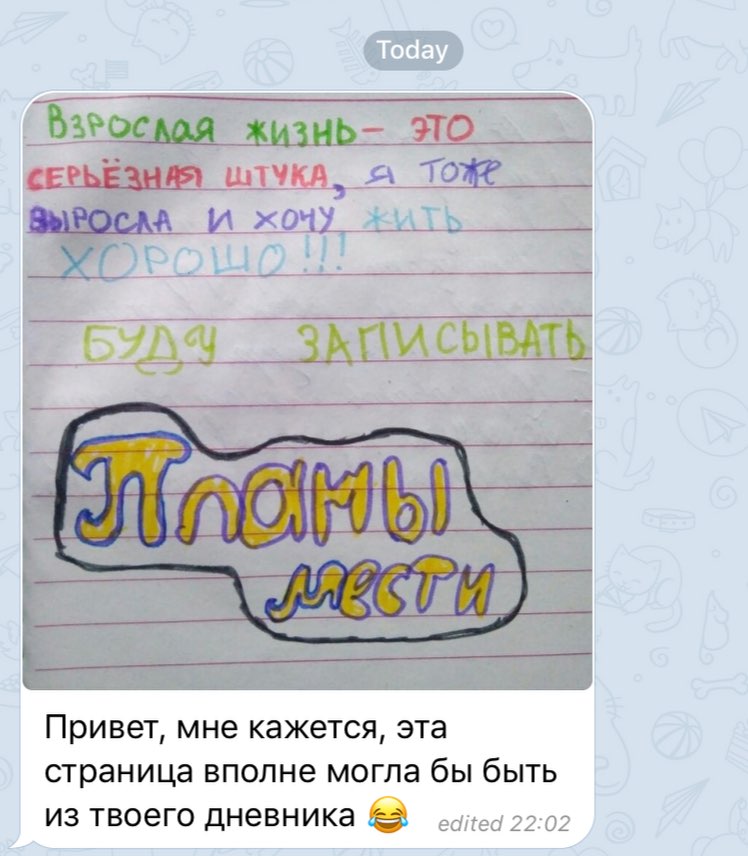 Today
Взрослая жизнь – это
серьёзная штука, я тоже
выросла и хочу жить
хорошо!!!
Буду записывать
Планы
мести
Привет, мне кажется, эта
страница вполне могла бы быть
из твоего дневника 😂
edited 22:02